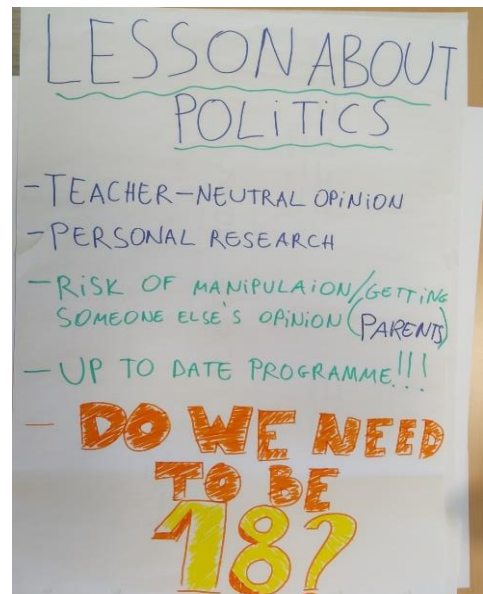 LESSON ABOUT
POLITICS
- TEACHER - NEUTRAL OPINION
- PERSONAL RESEARCH
- RISK OF MANIPULAION/GETTING
SOMEONE ELSE'S OPINION (PARENTS)
- UP TO DATE PROGRAMME!!!
- DO WE NEED
TO BE
18?